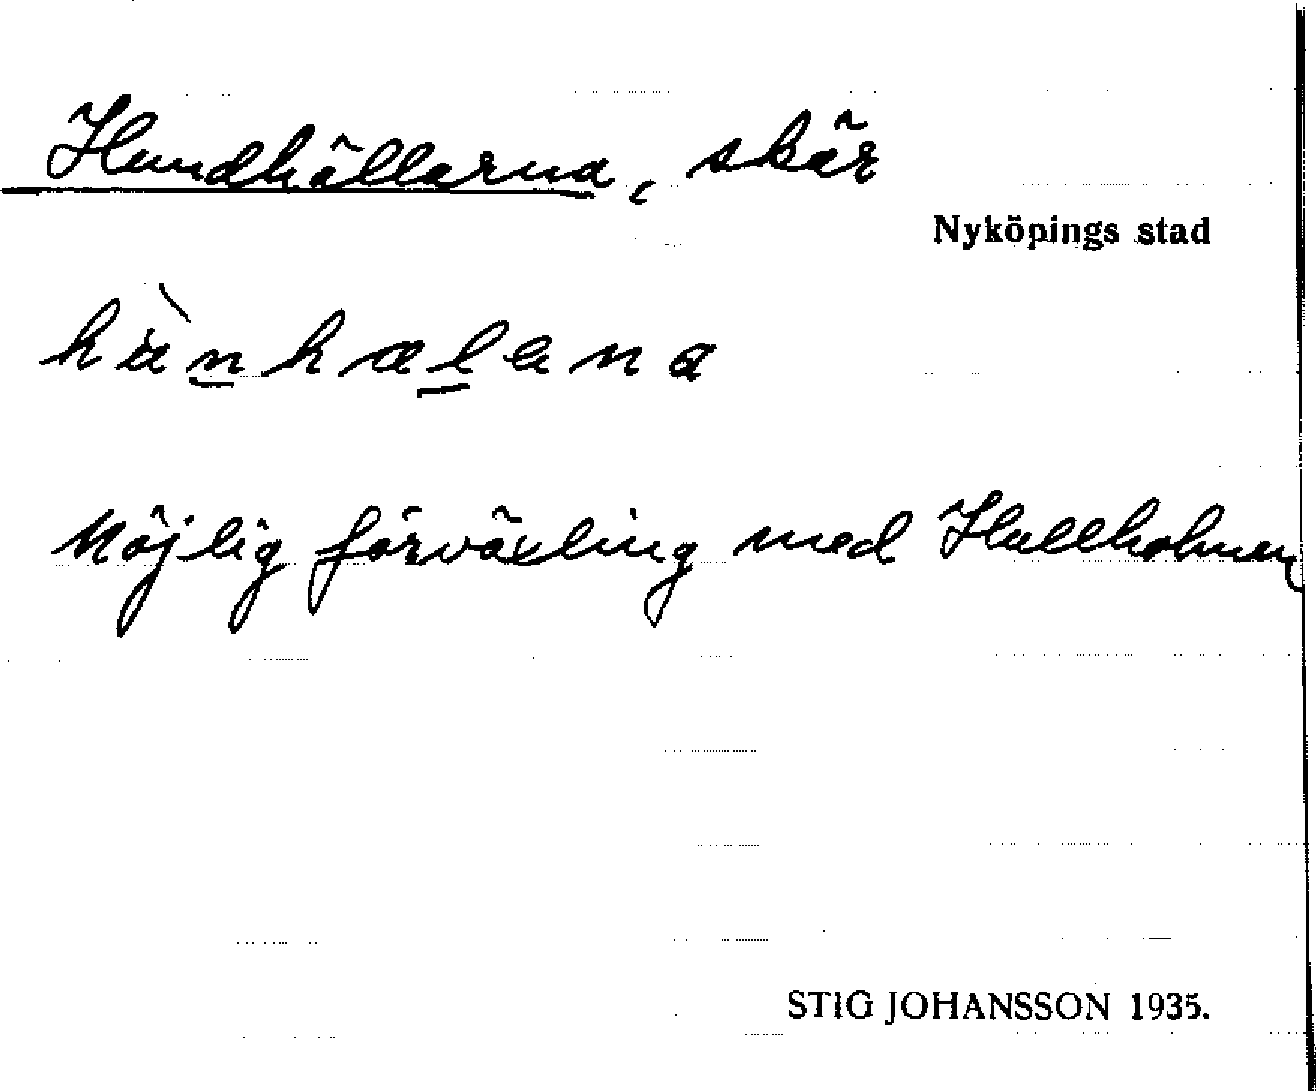 Hundhällarna, skär
Nyköpings stad
hùnhælana
Möjlig förväxling med Hallholmen
STIG JOHANSSON 1935.